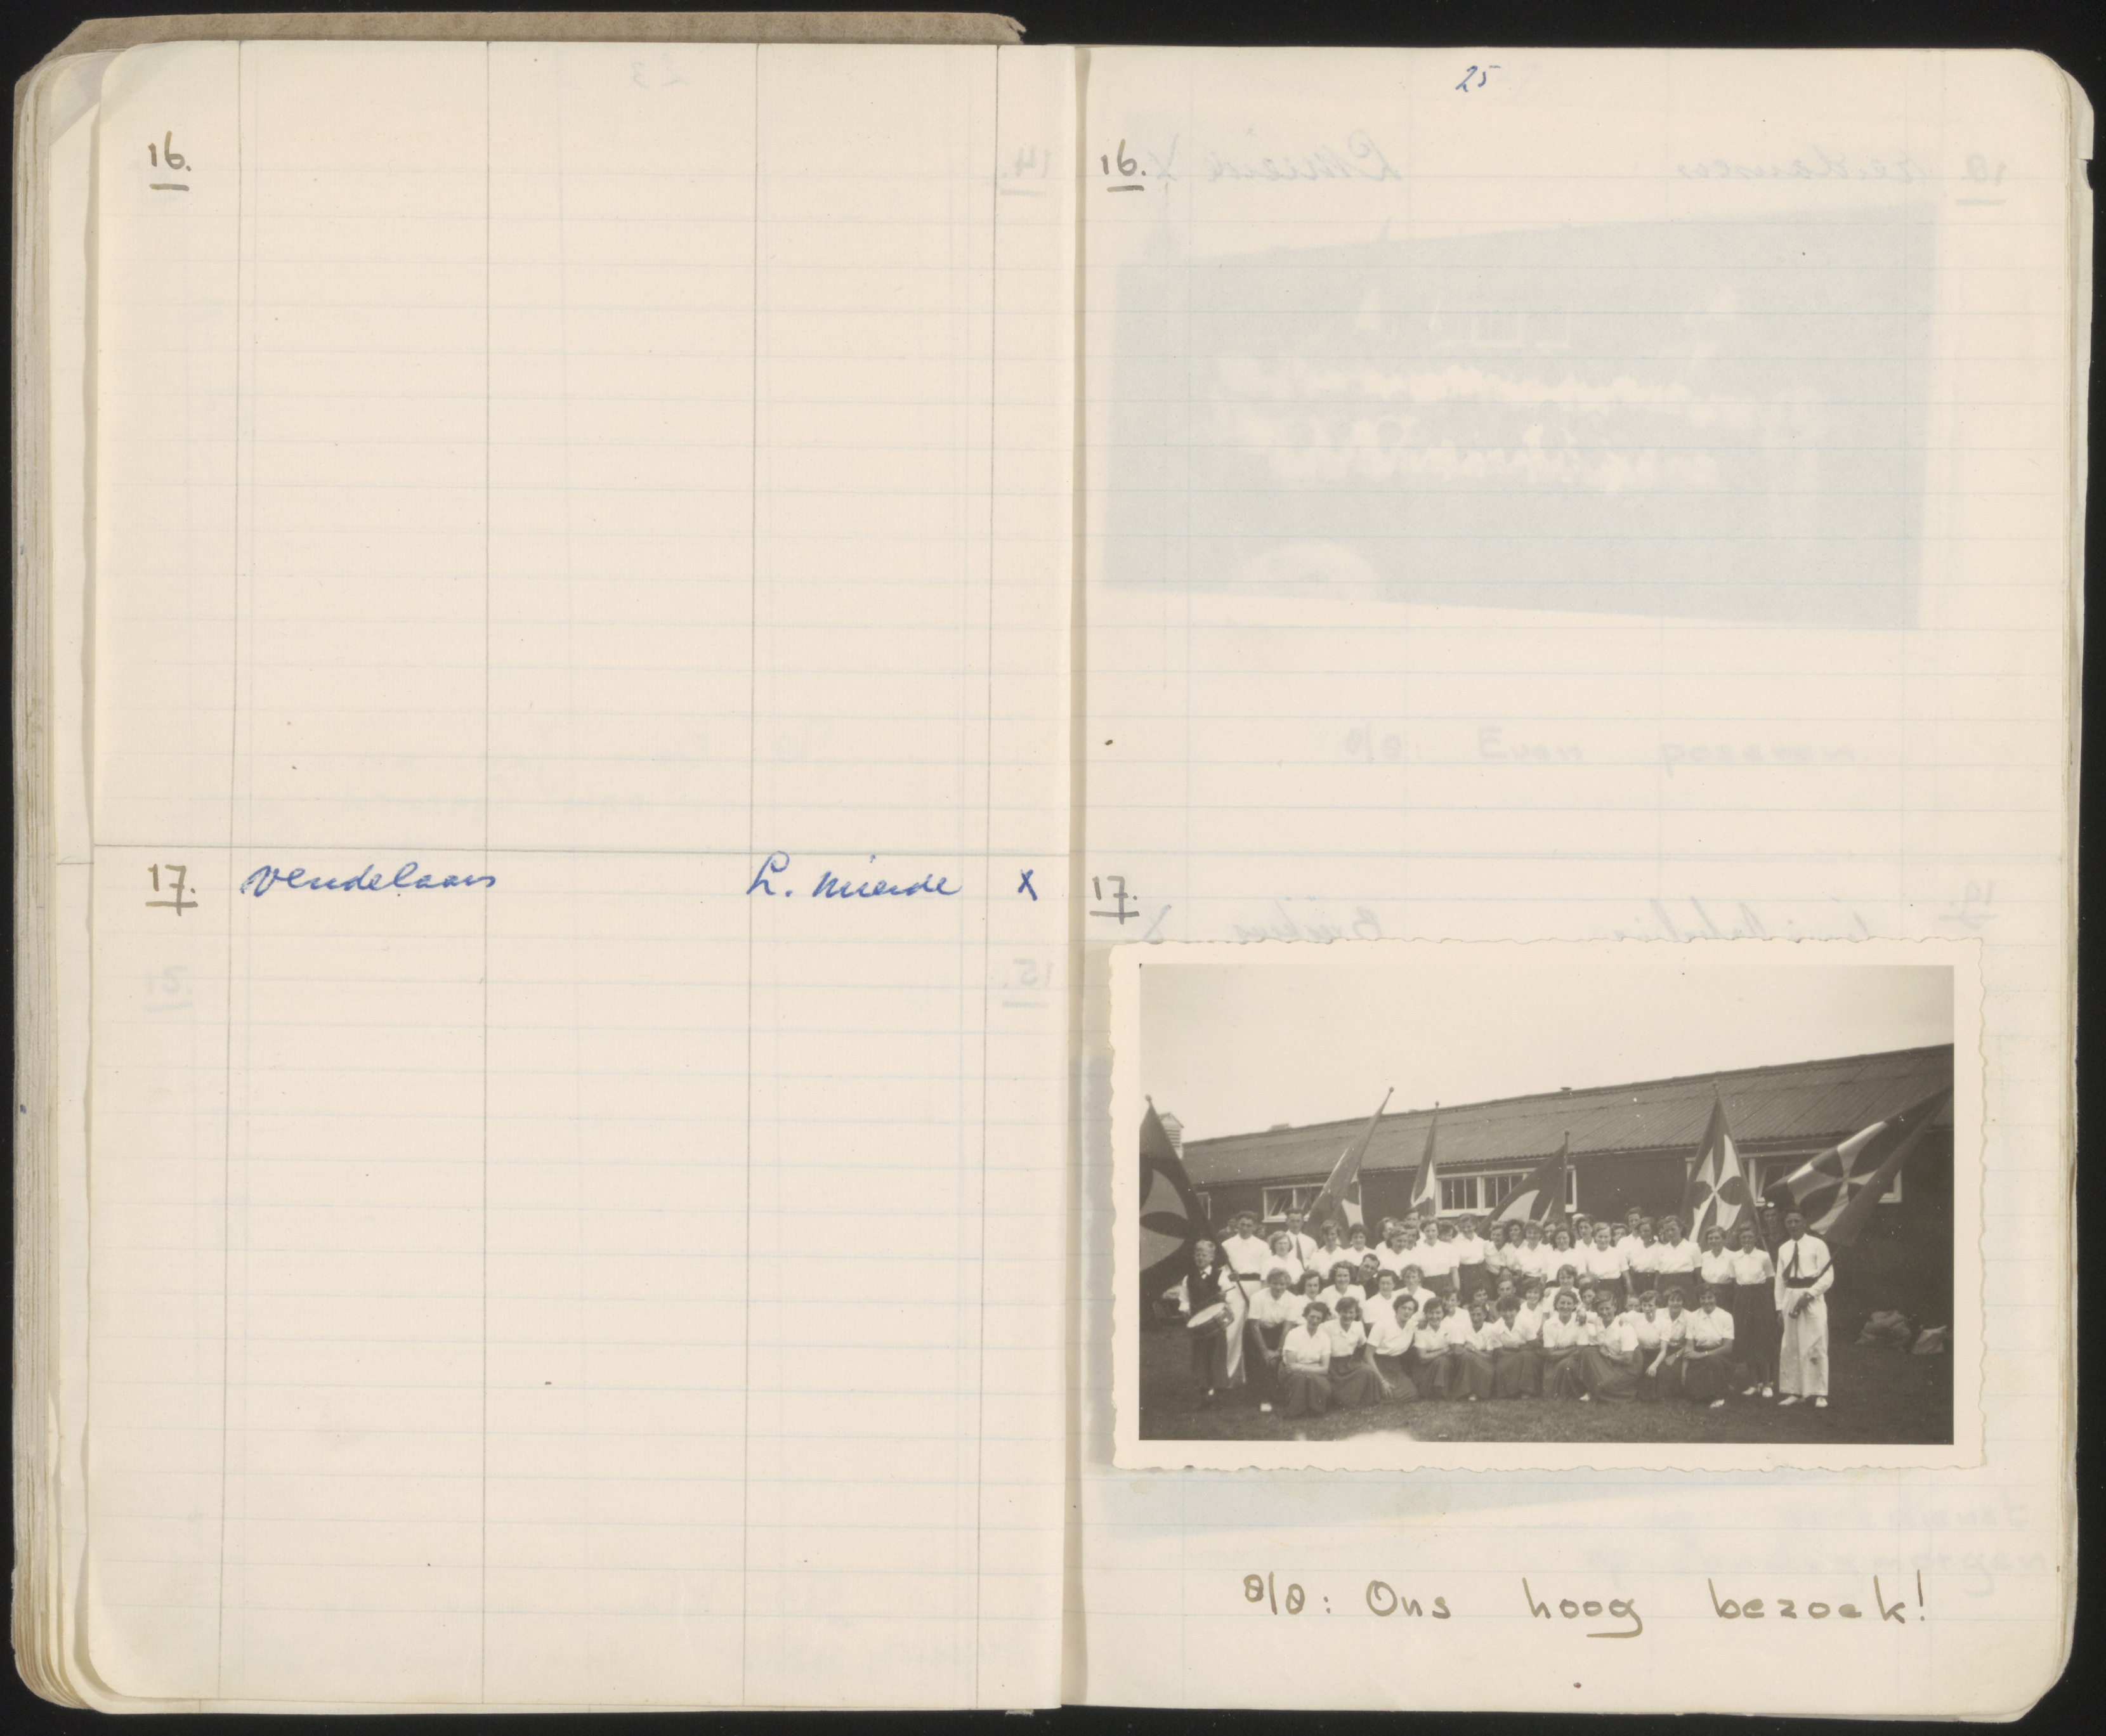 16.
17. vendelaars L. Mierde x
25
16.
17.
8/8: Ons hoog bezoek!